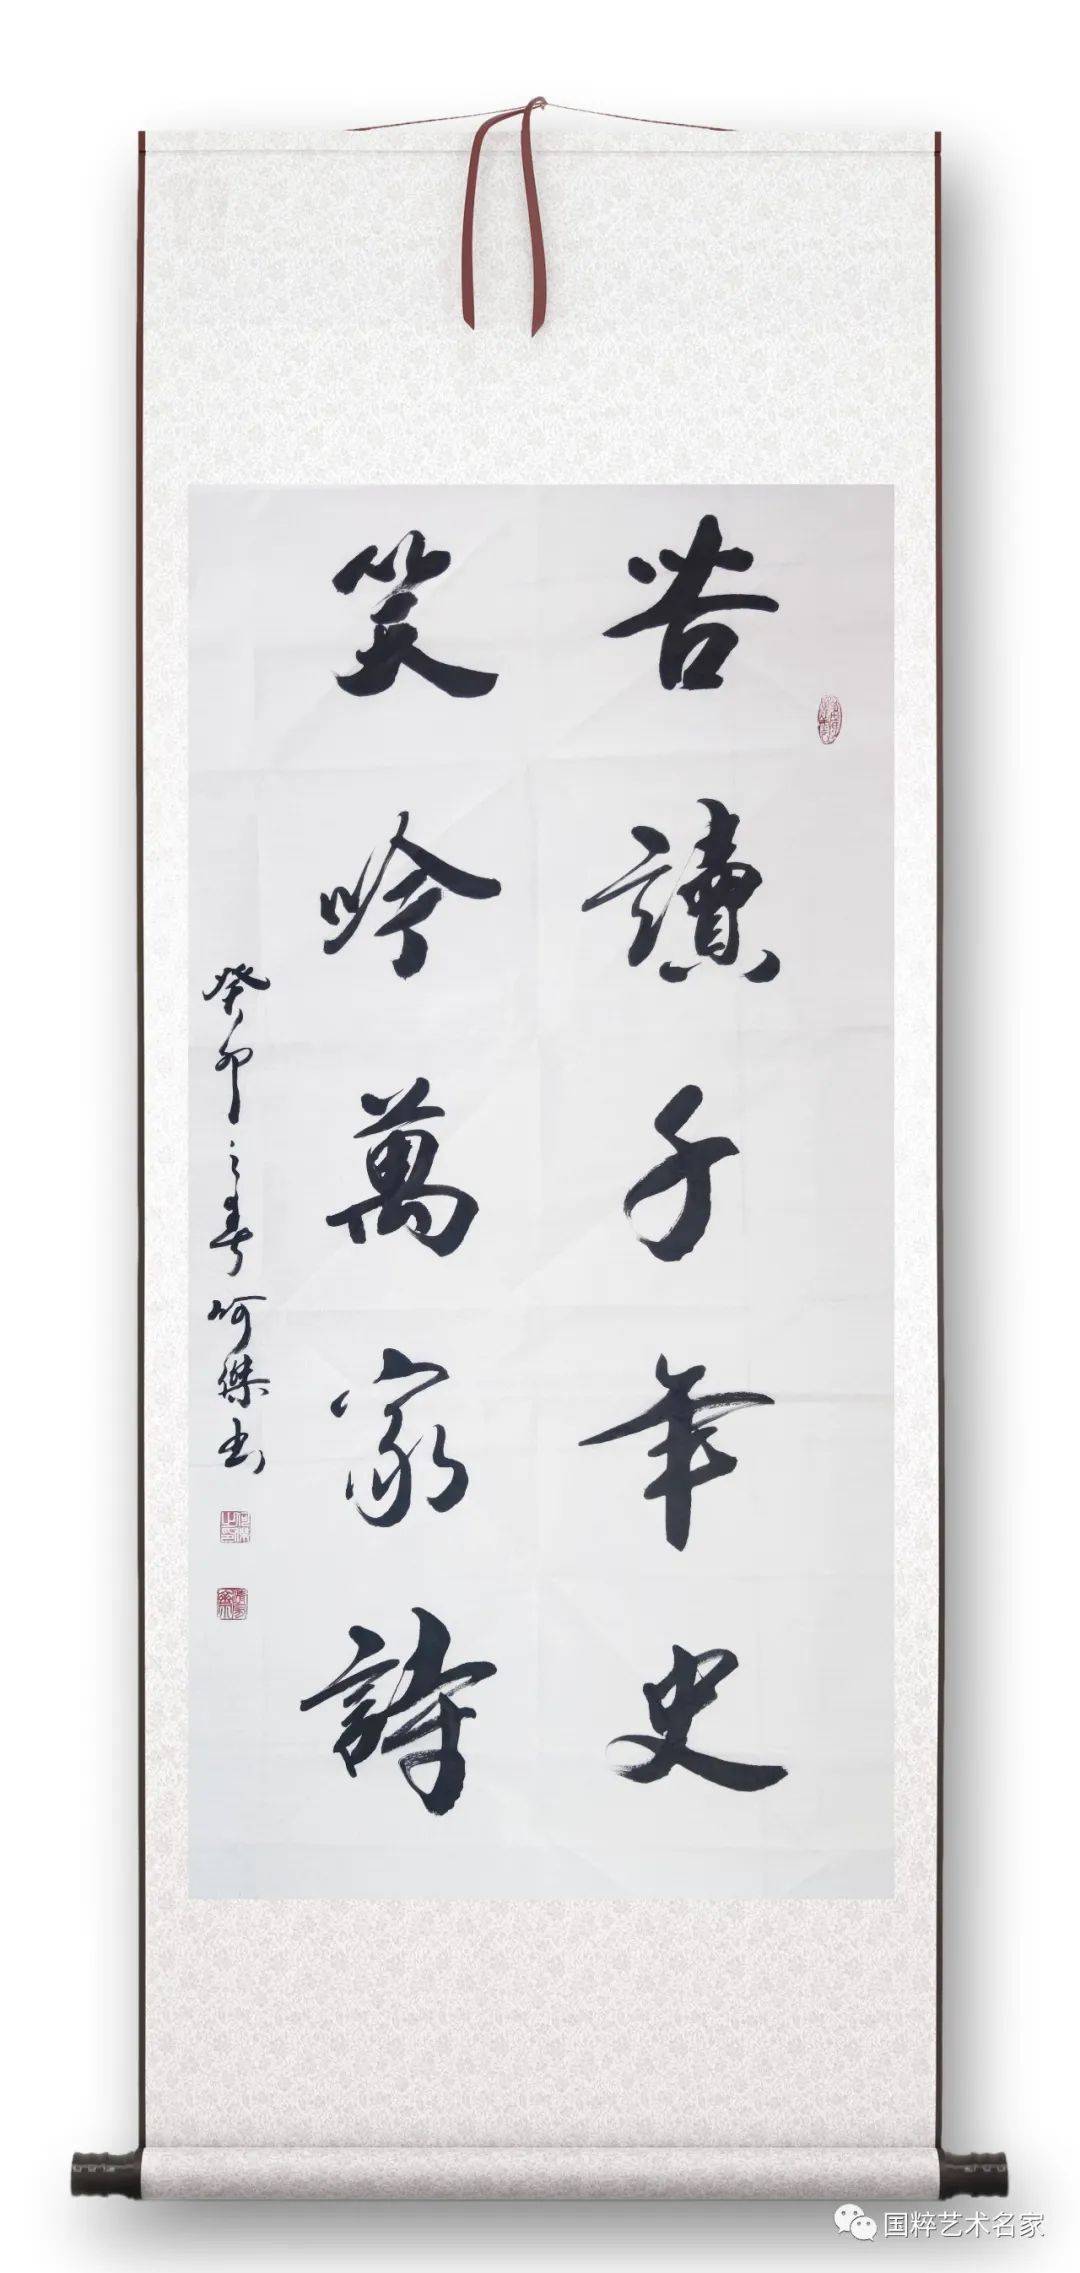 苦讀千年史
笑吟萬家詩
癸卯之春何傑书
国粹艺术名家